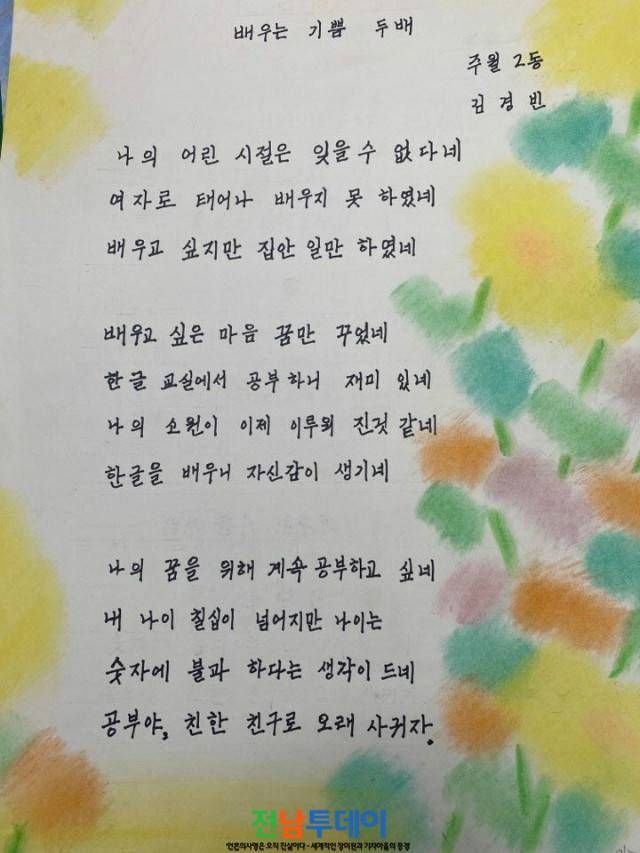 배우는 기쁨 두배
주월 2동
김경빈
나의 어린 시절은 잊을수 없다네
여자로 태어나 배우지 못 하였네
배우고 싶지만 집안 일만 하였네
배우고 싶은 마음 꿈만 꾸었네
한글 교실에서 공부하니 재미 있네
나의 소원이 이제 이루워 진것 같네
한글을 배우니 자신감이 생기네
나의 꿈을 위해 계속 공부하고 싶네
내 나이 칠십이 넘어지만 나이는
숫자에 불과 하다는 생각이 드네
공부야, 친한 친구로 오래 사귀자.
전남투데이